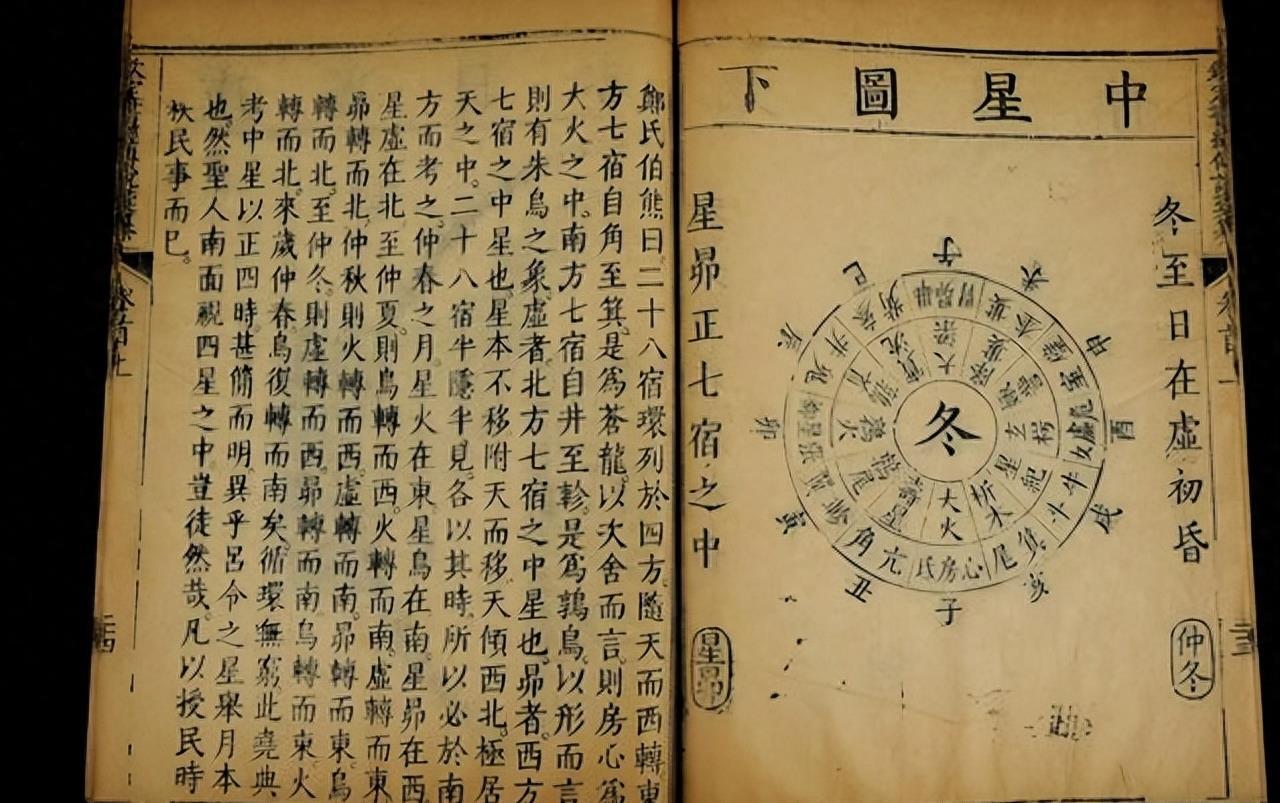 中星圖下
冬至日在虛初昏
仲冬
冬
大火
析木
星紀
玄枵
大梁
鶉火
鶉尾
壽星
氐房心
尾箕
斗牛
女虛危
井鬼
角亢
子
亥
戌
酉
申
辰
卯
寅
丑
星昴正七宿之中
星昴
鄭氏伯熊曰。二十八宿環列於四方。隨天而西轉。東
方七宿自角至箕。是爲蒼龍。以次舍而言。則房心爲
大火之中。南方七宿自井至軫。是爲鶉鳥。以形而言
則有朱鳥之象。虛者。北方七宿之中星也。昴者。西方
七宿之中星也。星本不移。附天而移。天傾西北。極居
天之中。二十八宿半隱半見。各以其時。所以必於南
方而考之。仲春之月。星火在東。星鳥在南。星昴在西
星虛在北。至仲夏。則鳥轉而西。火轉而南。虛轉而東
昴轉而北。仲秋則火轉而西。虛轉而南。昴轉而東。鳥
轉而北。至仲冬。則虛轉而西。昴轉而南。鳥轉而東。火
轉而北。來歲仲春。鳥復轉而南矣。循環無窮。此堯典
考中星以正四時。甚簡而明。異乎呂令之星舉月本
也。然聖人南面視四星之中。豈徒然哉。凡以授民時
秩民事而已。